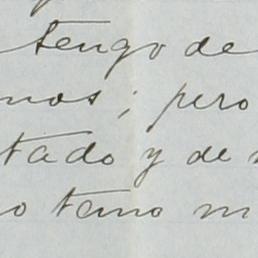 tengo de
nos; pero
tado y de
o temo m